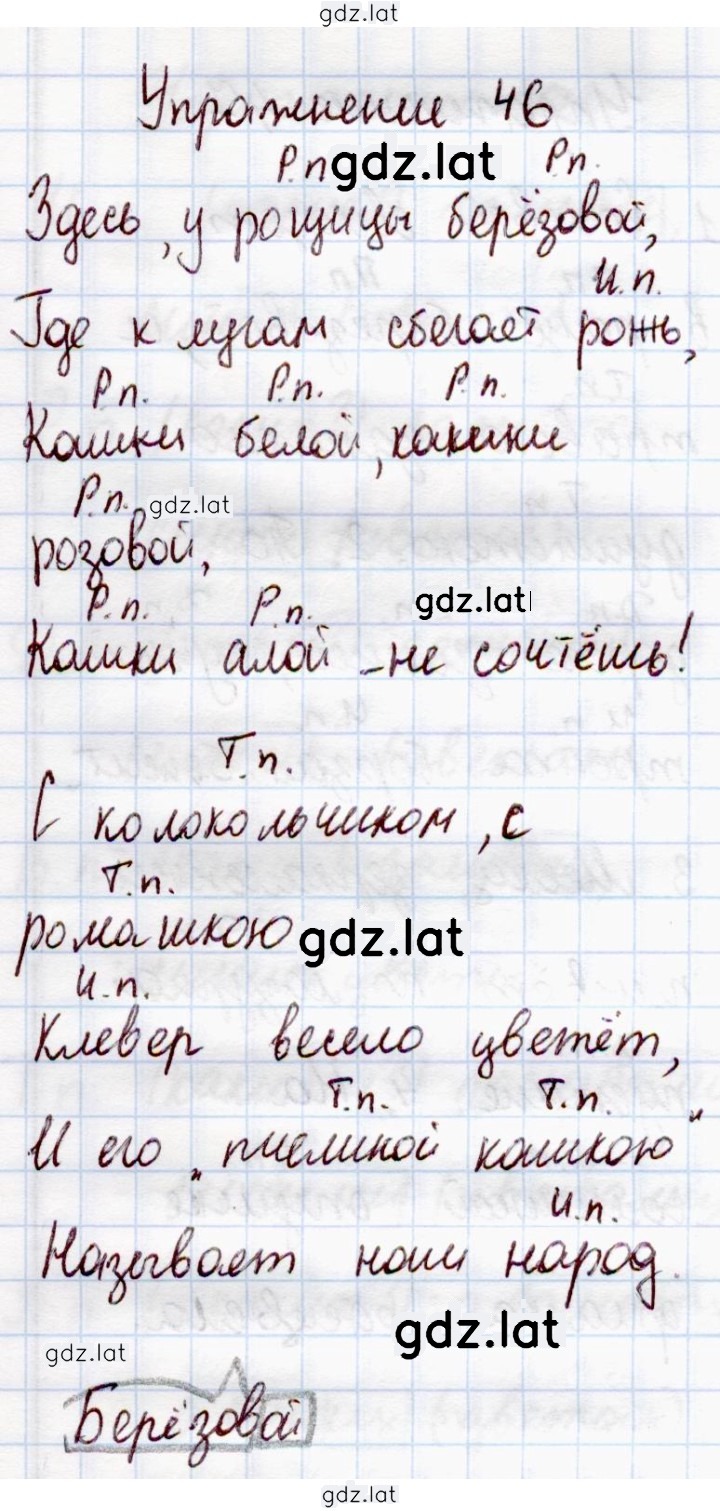 gdz.lat
Упражнение 46
Р.п. gdz.lat Р.п.
Здесь, у рощицы берёзовой,
И.п.
Где к лугам сбегает рожь,
Р.п. Р.п. Р.п.
Кашки белой, кашки
Р.п. gdz.lat
розовой,
Р.п. Р.п. gdz.lat
Кашки алой – не сочтёшь!
Т.п.
С колокольчиком, с
Т.п.
ромашкою gdz.lat
И.п.
Клевер весело цветёт,
Т.п. Т.п.
И его „пчелиной кашкою"
И.п.
Называет наш народ.
gdz.lat gdz.lat
Берёзовой
gdz.lat